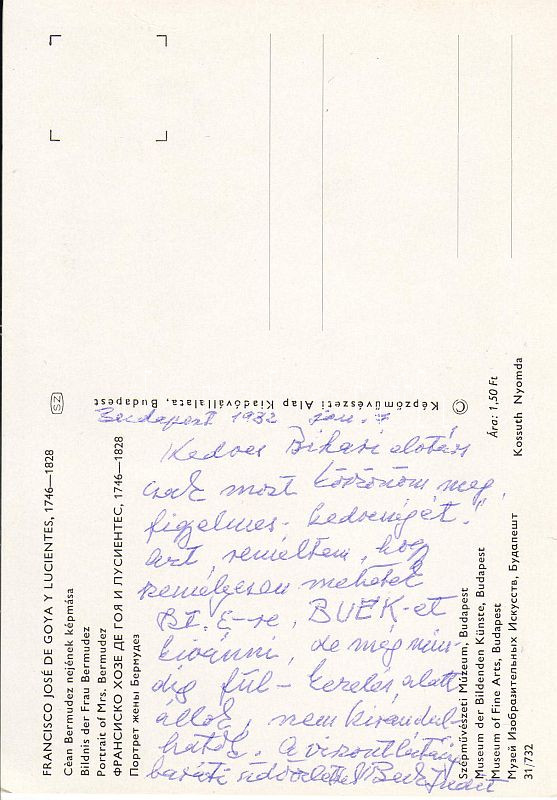 FRANCISCO JOSÉ DE GOYA Y LUCIENTES, 1746—1828
Céan Bermudez nejének képmása
Bildnis der Frau Bermudez
Portrait of Mrs. Bermudez
ФРАНСИСКО ХОЗЕ ДЕ ГОЯ И ЛУСИЕНТЕС, 1746—1828
Портрет жены Бермудез
SZ
Képzőművészeti Alap Kiadóvállalata, Budapest
©
Ára: 1,50 Ft
Kossuth Nyomda
Szépművészeti Múzeum, Budapest
Museum der Bildenden Künste, Budapest
Museum of Fine Arts, Budapest
Музей Изобразительных Искусств, Будапешт
31/732
Budapest 1982 jan. 7
Kedves Bihari
csak most köszönöm meg
figyelmes- kedvességét.
Azt reméltem, hogy
személyesen mehetek
É-re, BUÉK-et
kívánni, de még min-
dig fül- kezelés alatt
állok, nem kirándul-
hatok. A viszontlátásig
baráti üdvözlettel Judit